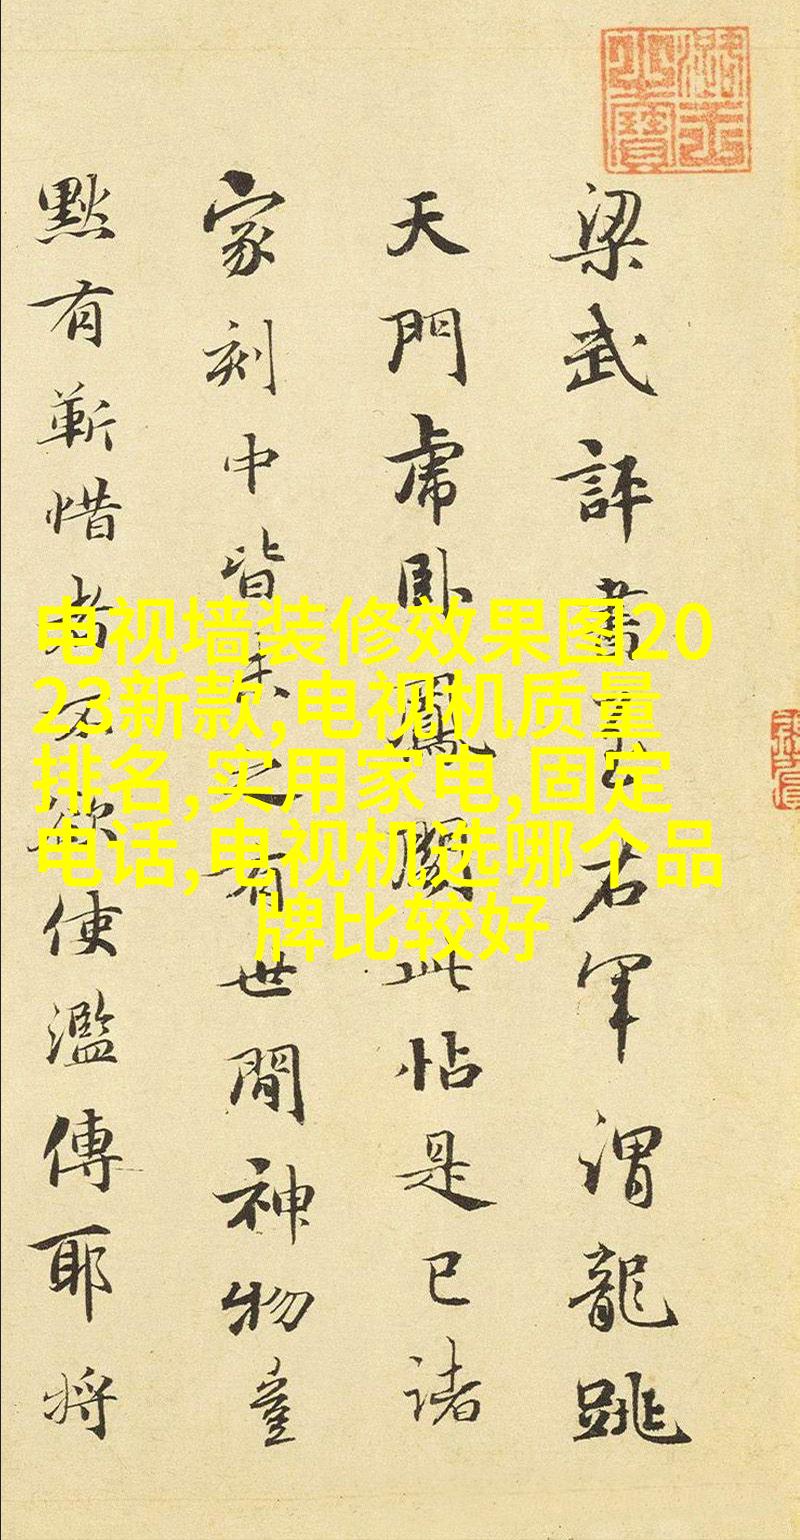 梁武評書至右軍謂龍跳
天門虎卧鳳閣此帖是已諸
家刻中皆未之有世間神物豈
黙有靳惜者不欲使濫傳耶將
电视墙装修效果图20
23新款,电视机质量
排名,实用家电,固定
电话,电视机选哪个品
牌比较好